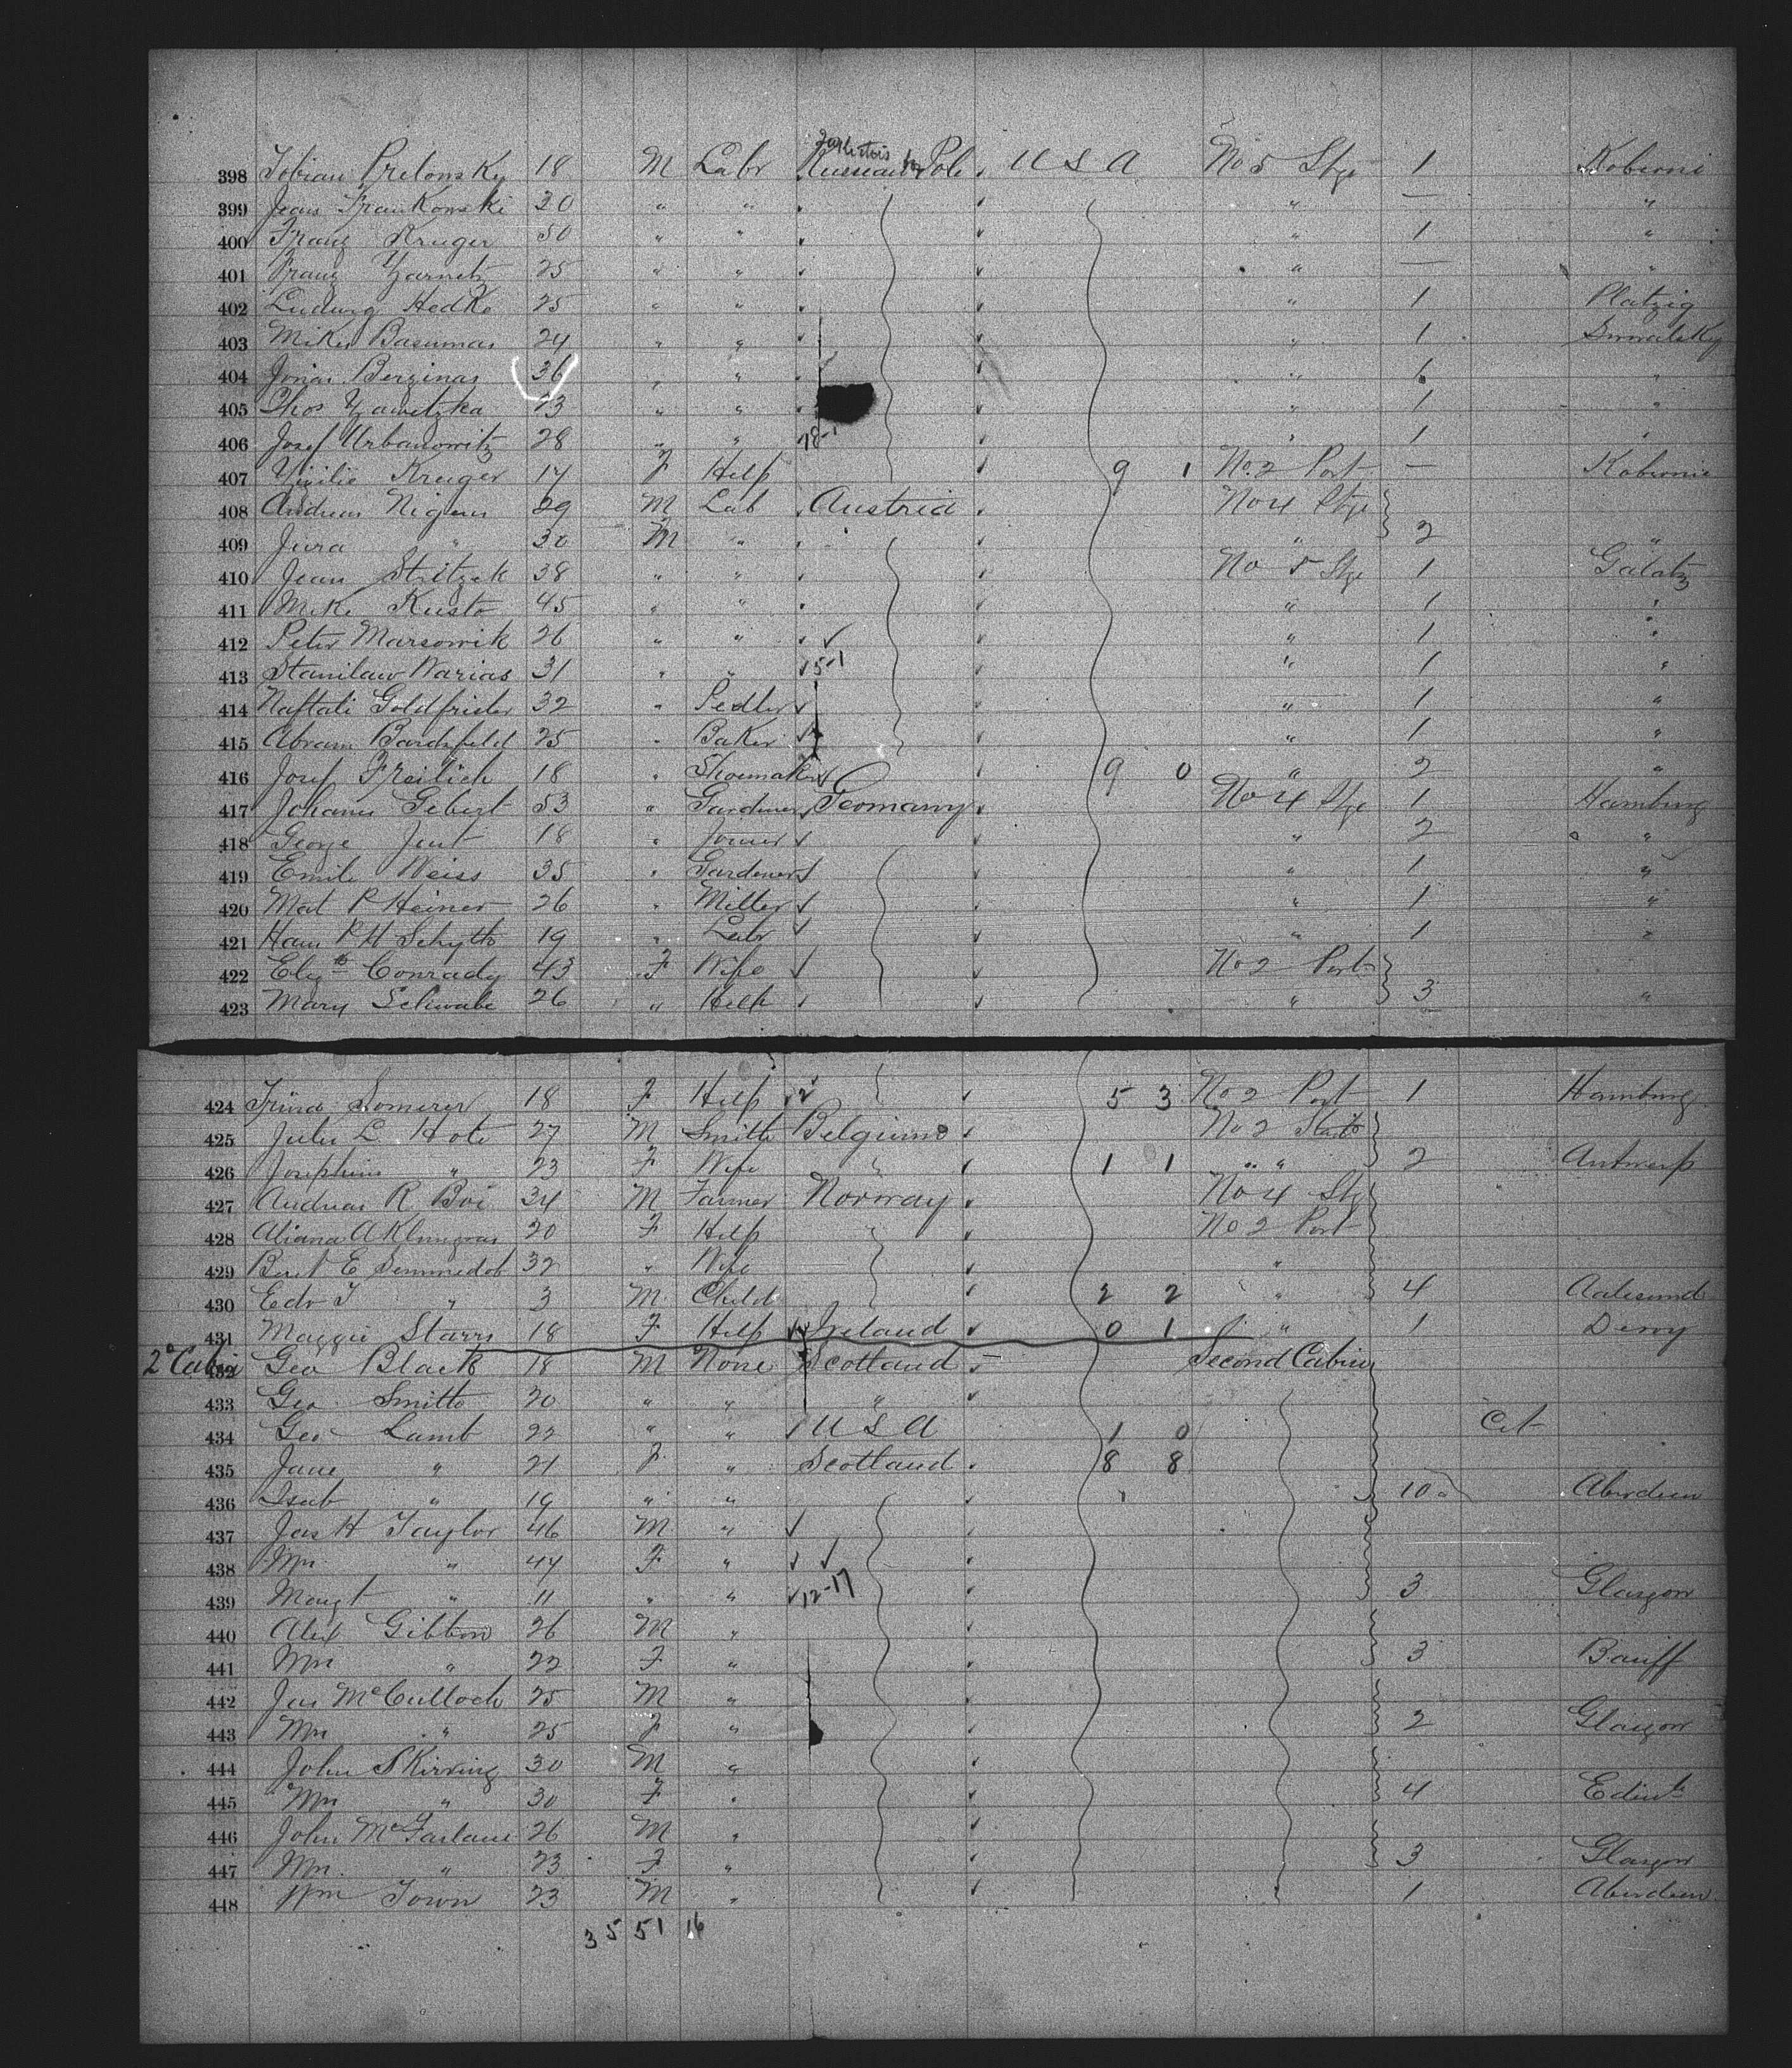 398 Tobian Prelonsky 18 M Labr Russian Pole U S A No 5 Stge 1 Koberni
399 Jean Frankowski 20 " " " — "
400 Franz Kruger 50 " " " 1 "
401 Franz Yarnetz 25 " " " — "
402 Ludwig Hedke 25 " " " 1 Platzig
403 Mike Basumas 24 " " " 1 Suwalsky
404 Jonas Berzinas 36 " " " 1 "
405 Thos Yawetzka 23 " " " 1 "
406 Josef Urbanowitz 28 " " " 1 "
407 Kruger 17 F Help 9 1 No. 2 Port — Kobernie
408 Andreas Nigun 29 M Lab Austria No 4 Stge
409 Jura " 30 M " " 2 "
410 Jean Stritzek 38 " " No 5 Stge 1 Galatz
411 Mike Kusto 45 " " " 1 "
412 Peter Marsowik 26 " " " 1 "
413 Stanilaw Warias 31 " " 15-1 " 1 "
414 Naftali Goldfrister 32 " Pedler " 1 "
415 Abram Bardsfeld 25 " Baker " 1 "
416 Josef Freilich 18 " Shoemaker 9 0 " 2 "
417 Johanes Gebert 53 " Gardener Germany No 4 Stge 1 Hamburg
418 George Jent 18 " Joiner " 2 "
419 Emile Weiss 35 " Gardener " 1 "
420 Mat P Heiner 26 " Miller " 1 "
421 Hans P H Schytto 19 " Labr " 1 "
422 Elizth Conrady 43 F Wife No 2 Port
423 Mary Schwabe 26 " Help " 3 "
424 Trina Somerer 18 F Help 5 3 No 2 Port 1 Hamburg
425 Jules L Hote 27 M Smith Belgium No 2 Starb
426 Josephine " 23 F Wife 1 1 " " 2 Antwerp
427 Andreas R Boe 34 M Farmer Norway No 4 Stge
428 Aliana A 20 F Help No 2 Port
429 Berit E 32 " Wife "
430 Edv T " 3 M Child 2 2 " 4 Aalesund
431 Maggie Starrs 18 F Help Ireland 0 1 " 1 Derry
2d Cabin 432 Geo Black 18 M None Scotland Second Cabin
433 Geo Smith 20 " " "
434 Geo Lamb 22 " " U S A 1 0 Cit
435 Jane " 21 F " Scotland 8 8
436 Isab " 19 " " 10 Aberdeen
437 Jas H Taylor 46 M "
438 Mrs " 44 F "
439 Margt " 11 " " 12-17 3 Glasgow
440 Alex Gibbon 26 M "
441 Mrs " 22 F " 3 Banff
442 Jas McCulloch 25 M "
443 Mrs " 25 F " 2 Glasgow
444 John Skirving 30 M "
445 Mrs " 30 F " 4 Edinb
446 John McFarlane 26 M "
447 Mrs " 23 F " 3 Glasgow
448 Wm Town 23 M " 1 Aberdeen
3 5 51 16